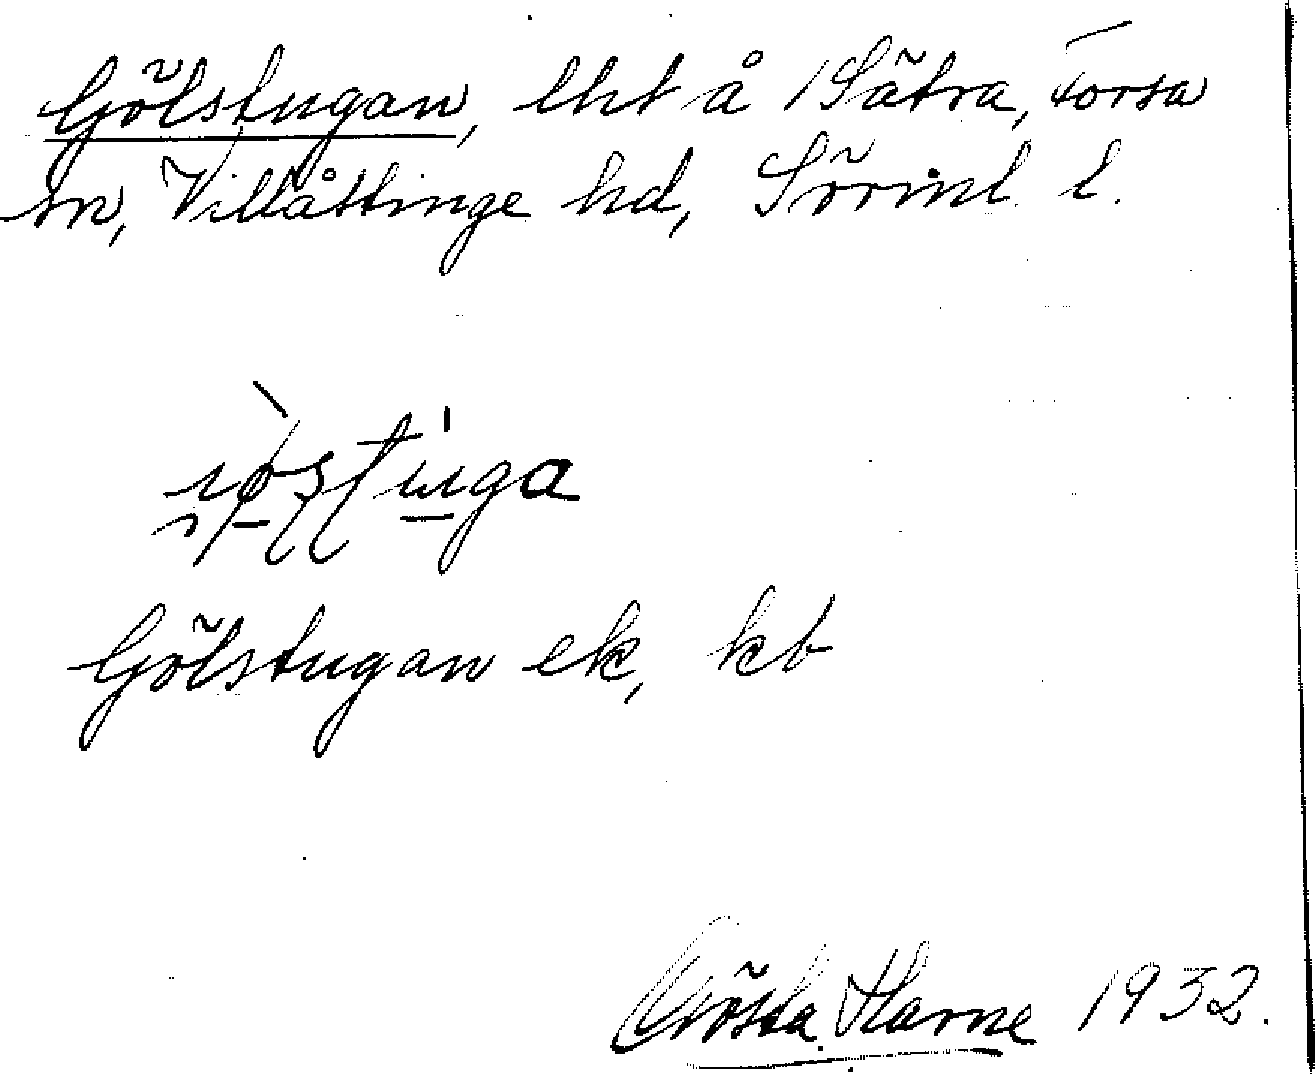 Gölstugan, lht å Sätra, Forsa
sn, Villåttinge hd, Sörml. l.
Gölstugan ek, kb
Gösta Harne 1932.